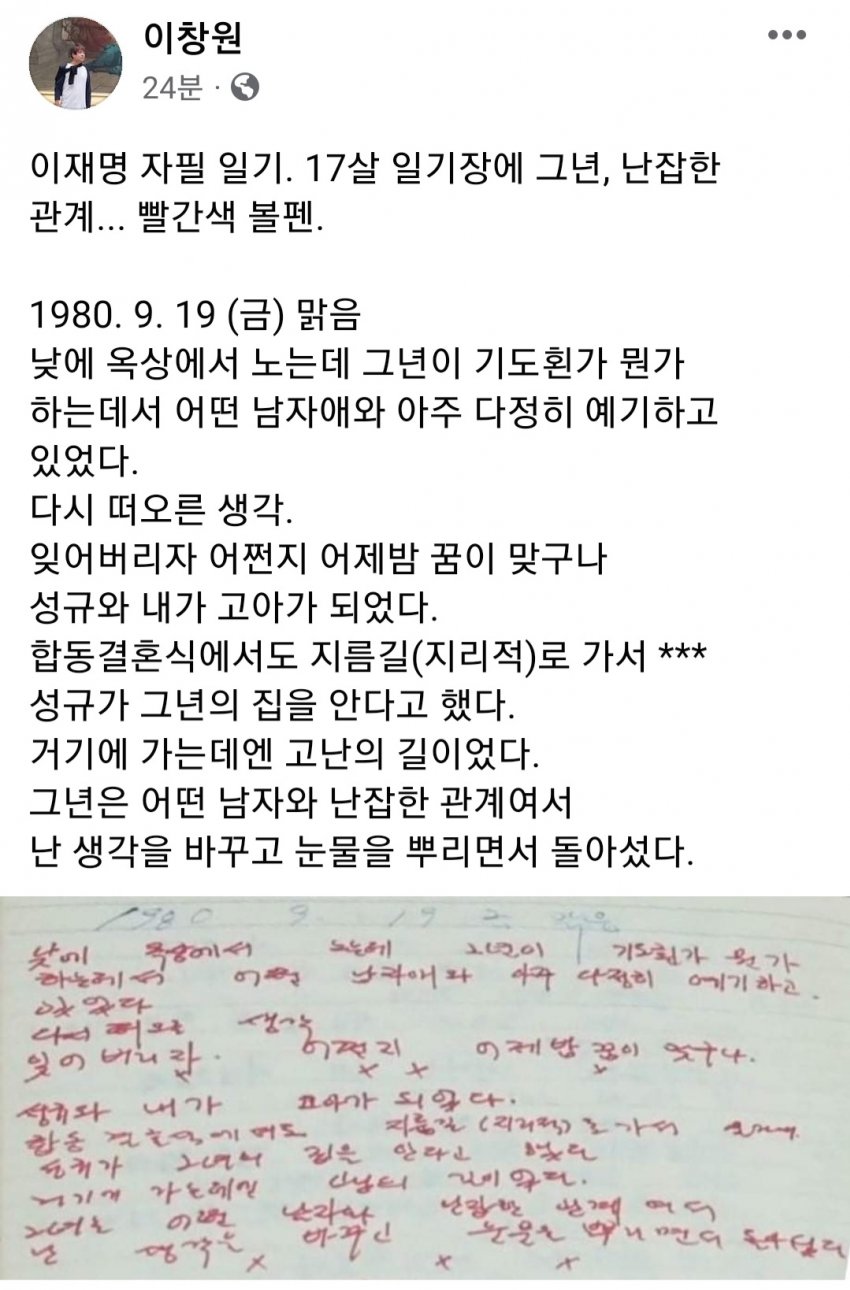 이창원
24분 ·
이재명 자필 일기. 17살 일기장에 그년, 난잡한
관계... 빨간색 볼펜.
1980. 9. 19 (금) 맑음
낮에 옥상에서 노는데 그년이 기도횐가 뭔가
하는데서 어떤 남자애와 아주 다정히 예기하고
있었다.
다시 떠오른 생각.
잊어버리자 어쩐지 어제밤 꿈이 맞구나
성규와 내가 고아가 되었다.
합동결혼식에서도 지름길(지리적)로 가서 ***
성규가 그년의 집을 안다고 했다.
거기에 가는데엔 고난의 길이었다.
그년은 어떤 남자와 난잡한 관계여서
난 생각을 바꾸고 눈물을 뿌리면서 돌아섰다.
1980 9. 19
낮에 옥상에서 노는데 그년이 기도횐가 뭔가
하는데서 어떤 남자애와 아주 다정히 예기하고.
있었다
다시 떠오른 생각
잊어버리자. 어쩐지 어제밤 꿈이 맞구나.
성규와 내가 고아가 되었다.
합동결혼식에서도 지름길(지리적)로 가서
성규가 그년의 집을 안다고 했다
거기에 가는데엔 고난의 길이었다.
그녀는 어떤 남자와 난잡한 관계여서
난 생각을 바꾸고 눈물을 뿌리면서 돌아섰다